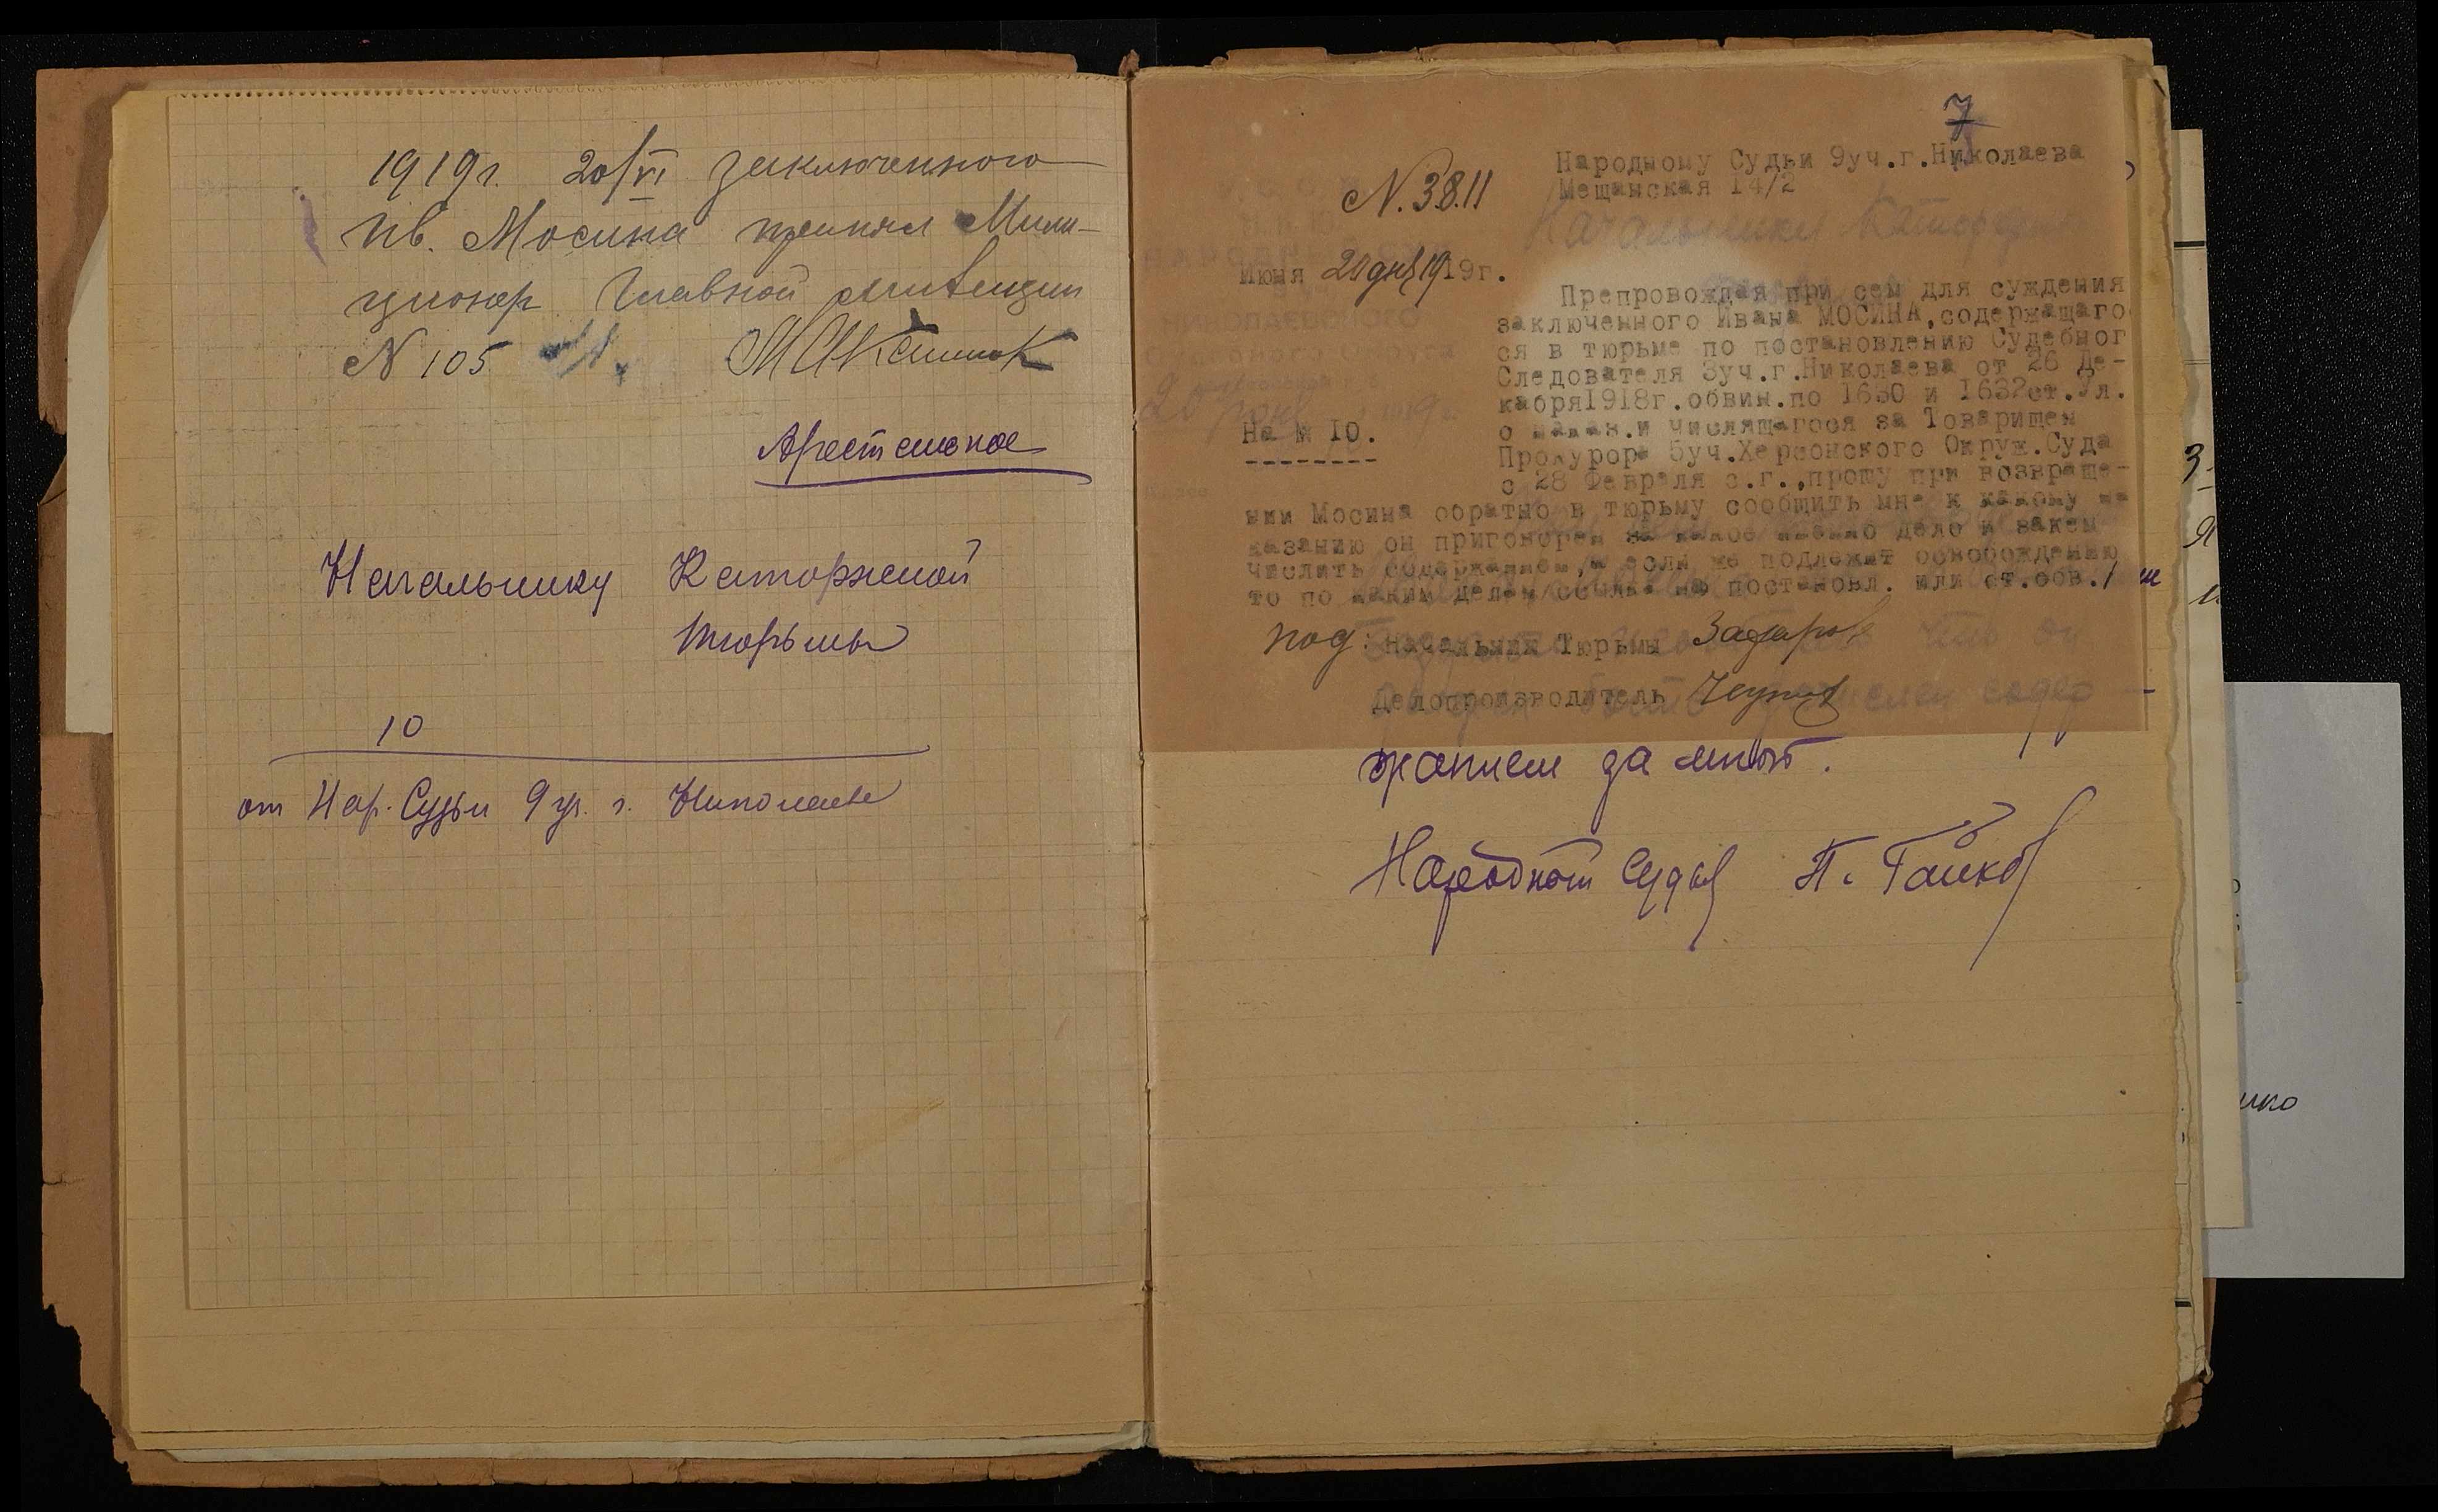 1919г. 20/VI заключенного
Ив. Мосина принял Мили-
ционер Главной милиции
N 105
Арестантское
Начальнику Каторжной
тюрьмы
10
от Нар. Судьи 9 уч. г. Николаева
7
Народному Судьи 9уч.г.Николаева
Мещанская 14/2
N. 3811
Начальнику Каторжной
Июня 20 дня 1919г.
Препровождая при сем для суждения
заключенного Ивана МОСИНА,содержащаго
ся в тюрьме по постановлению Судебног
Следователя 3уч.г.Николаева от 26 Де-
кабря1918г.обвин.по 1630 и 1632ст.Ул.
о наказ.и числящагося за Товарищем
На № 10.
Прокурора 5уч.Херсонского Окруж.Суда
с 28 Февраля с.г.,прошу при возвраще-
нии Мосина обратно в тюрьму сообщить мне к какому на
казанию он приговорен за какое именно дело и закем
числить содержанием,а если же подлежит освобождению
то по каким делам ссылка на постановл. или от.осв./
под: Начальник Тюрьмы
Делопроизводитель
жанием за мной.
Народный Судья П. Гайко